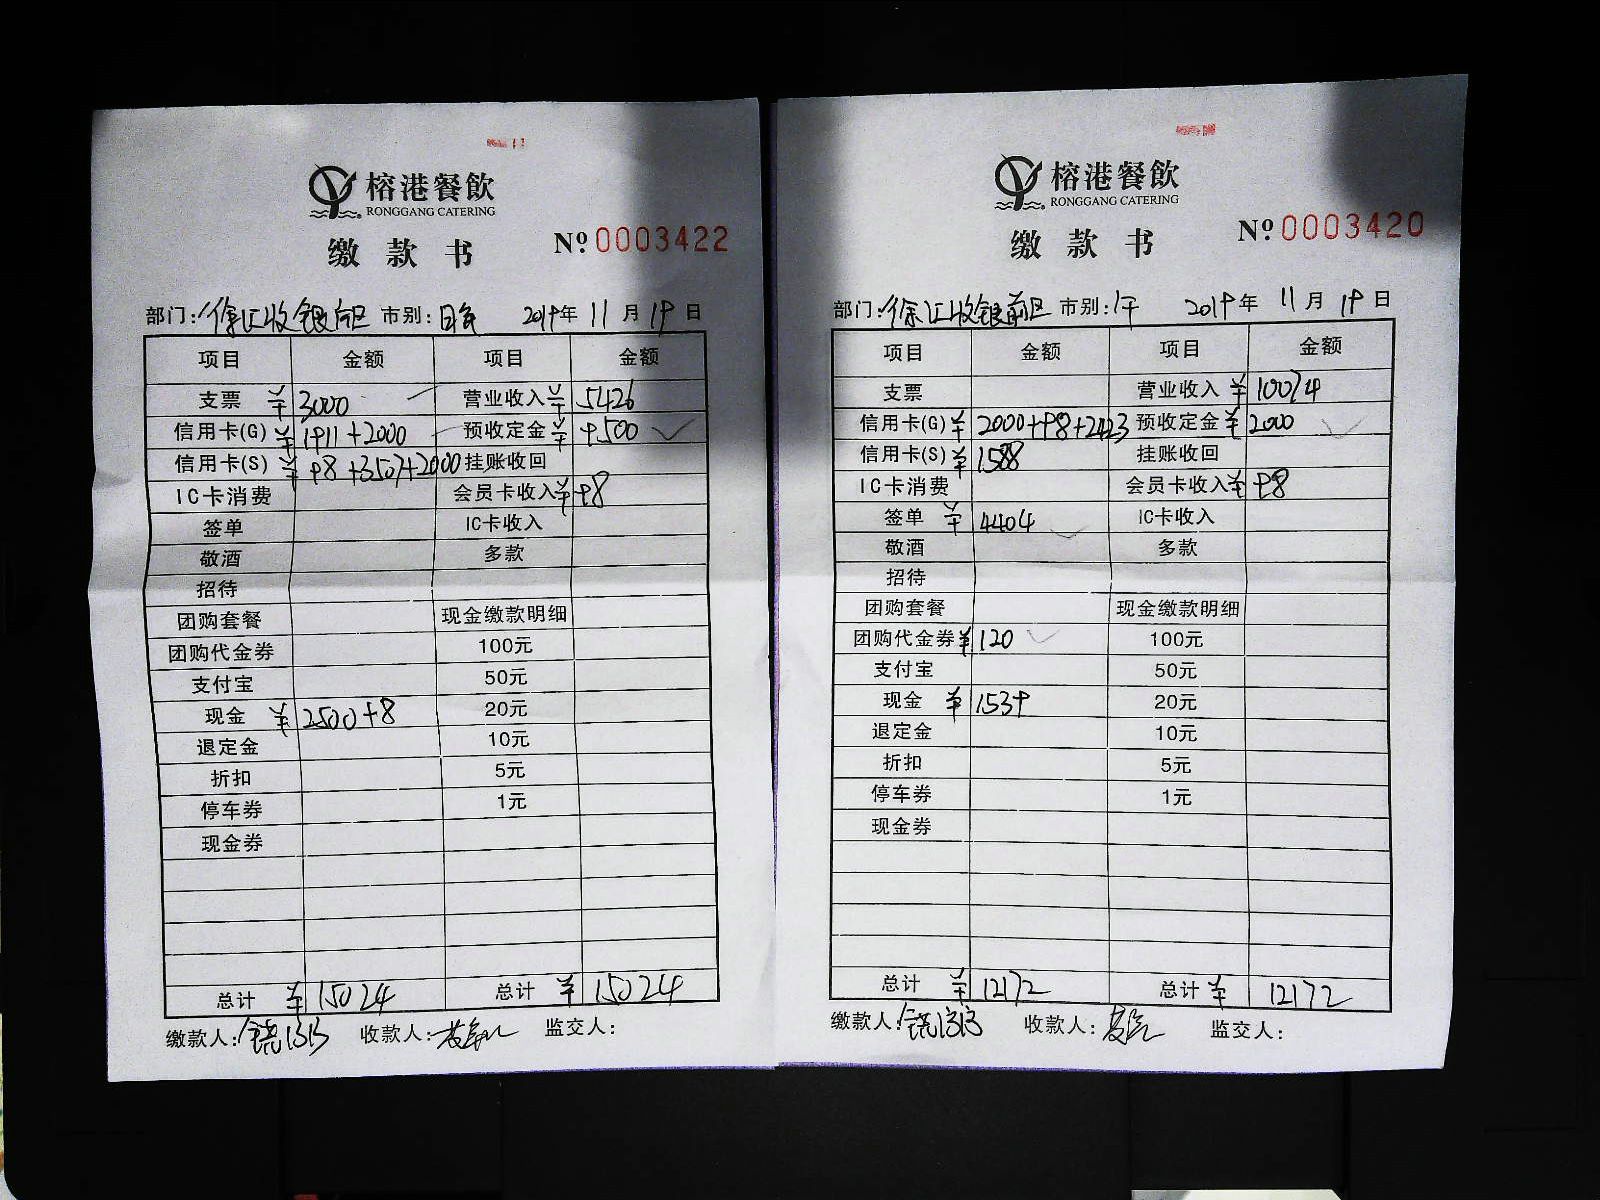 榕港餐飲
RONGGANG CATERING
缴款书
№ 0003422
部门: 徐汇收银 市别: 2019年 11月 19日
项目 金额 项目 金额
支票 ¥ 3000 营业收入 ¥ 5426
信用卡(G) ¥ 1911+2000 预收定金 ¥ 9500
信用卡(S) ¥ 98+3507+2000 挂账收回
IC卡消费 会员卡收入 ¥ 98
签单 IC卡收入
敬酒 多款
招待
团购套餐 现金缴款明细
团购代金券 100元
支付宝 50元
现金 ¥ 2500+8 20元
退定金 10元
折扣 5元
停车券 1元
现金券
总计 ¥ 15024 总计 ¥ 15024
缴款人: 收款人: 监交人:
榕港餐飲
RONGGANG CATERING
缴款书
№ 0003420
部门: 徐汇收银前区 市别: 午 2019年 11月 19日
项目 金额 项目 金额
支票 营业收入 ¥ 10074
信用卡(G) ¥ 2000+98+2423 预收定金 ¥ 2000
信用卡(S) ¥ 1588 挂账收回
IC卡消费 会员卡收入 ¥ 98
签单 ¥ 4404 IC卡收入
敬酒 多款
招待
团购套餐 现金缴款明细
团购代金券 ¥ 120 100元
支付宝 50元
现金 ¥ 1539 20元
退定金 10元
折扣 5元
停车券 1元
现金券
总计 ¥ 12172 总计 ¥ 12172
缴款人: 收款人: 监交人: